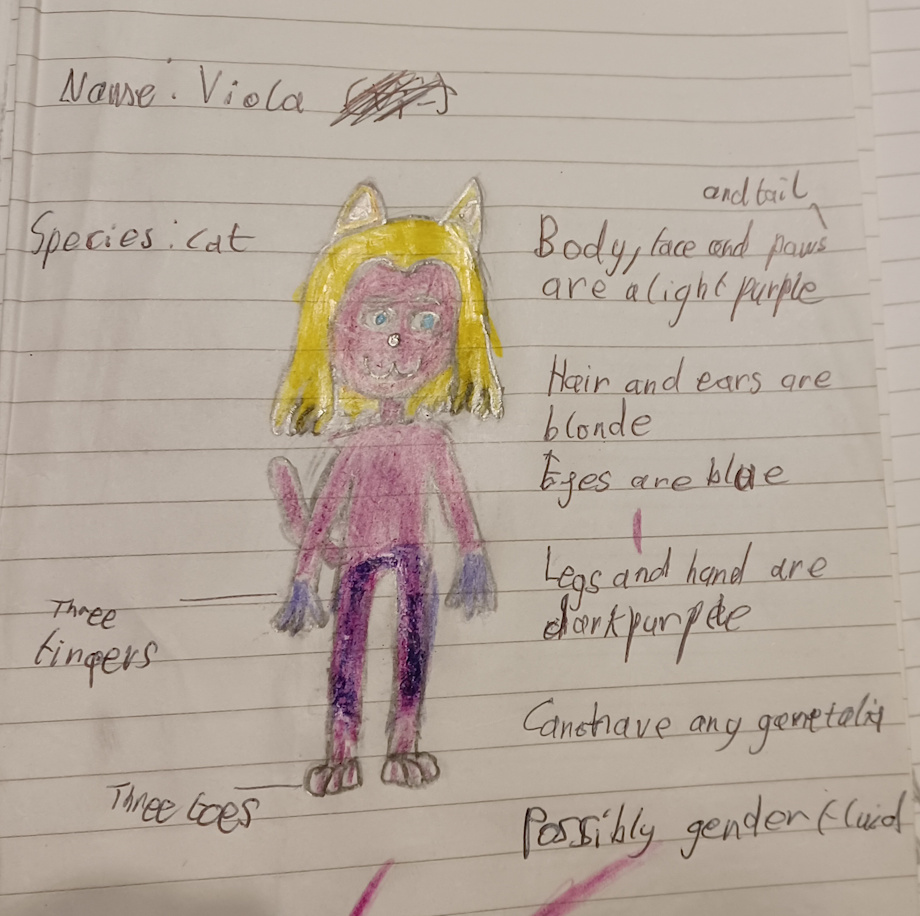 Name: Viola
Species: cat
and tail
Body, face and paws
are a light purple
Hair and ears are
blonde
Eyes are blue
Legs and hand are
dark purple
Three
fingers
Three toes
have any genetalia
Possibly gender fluid